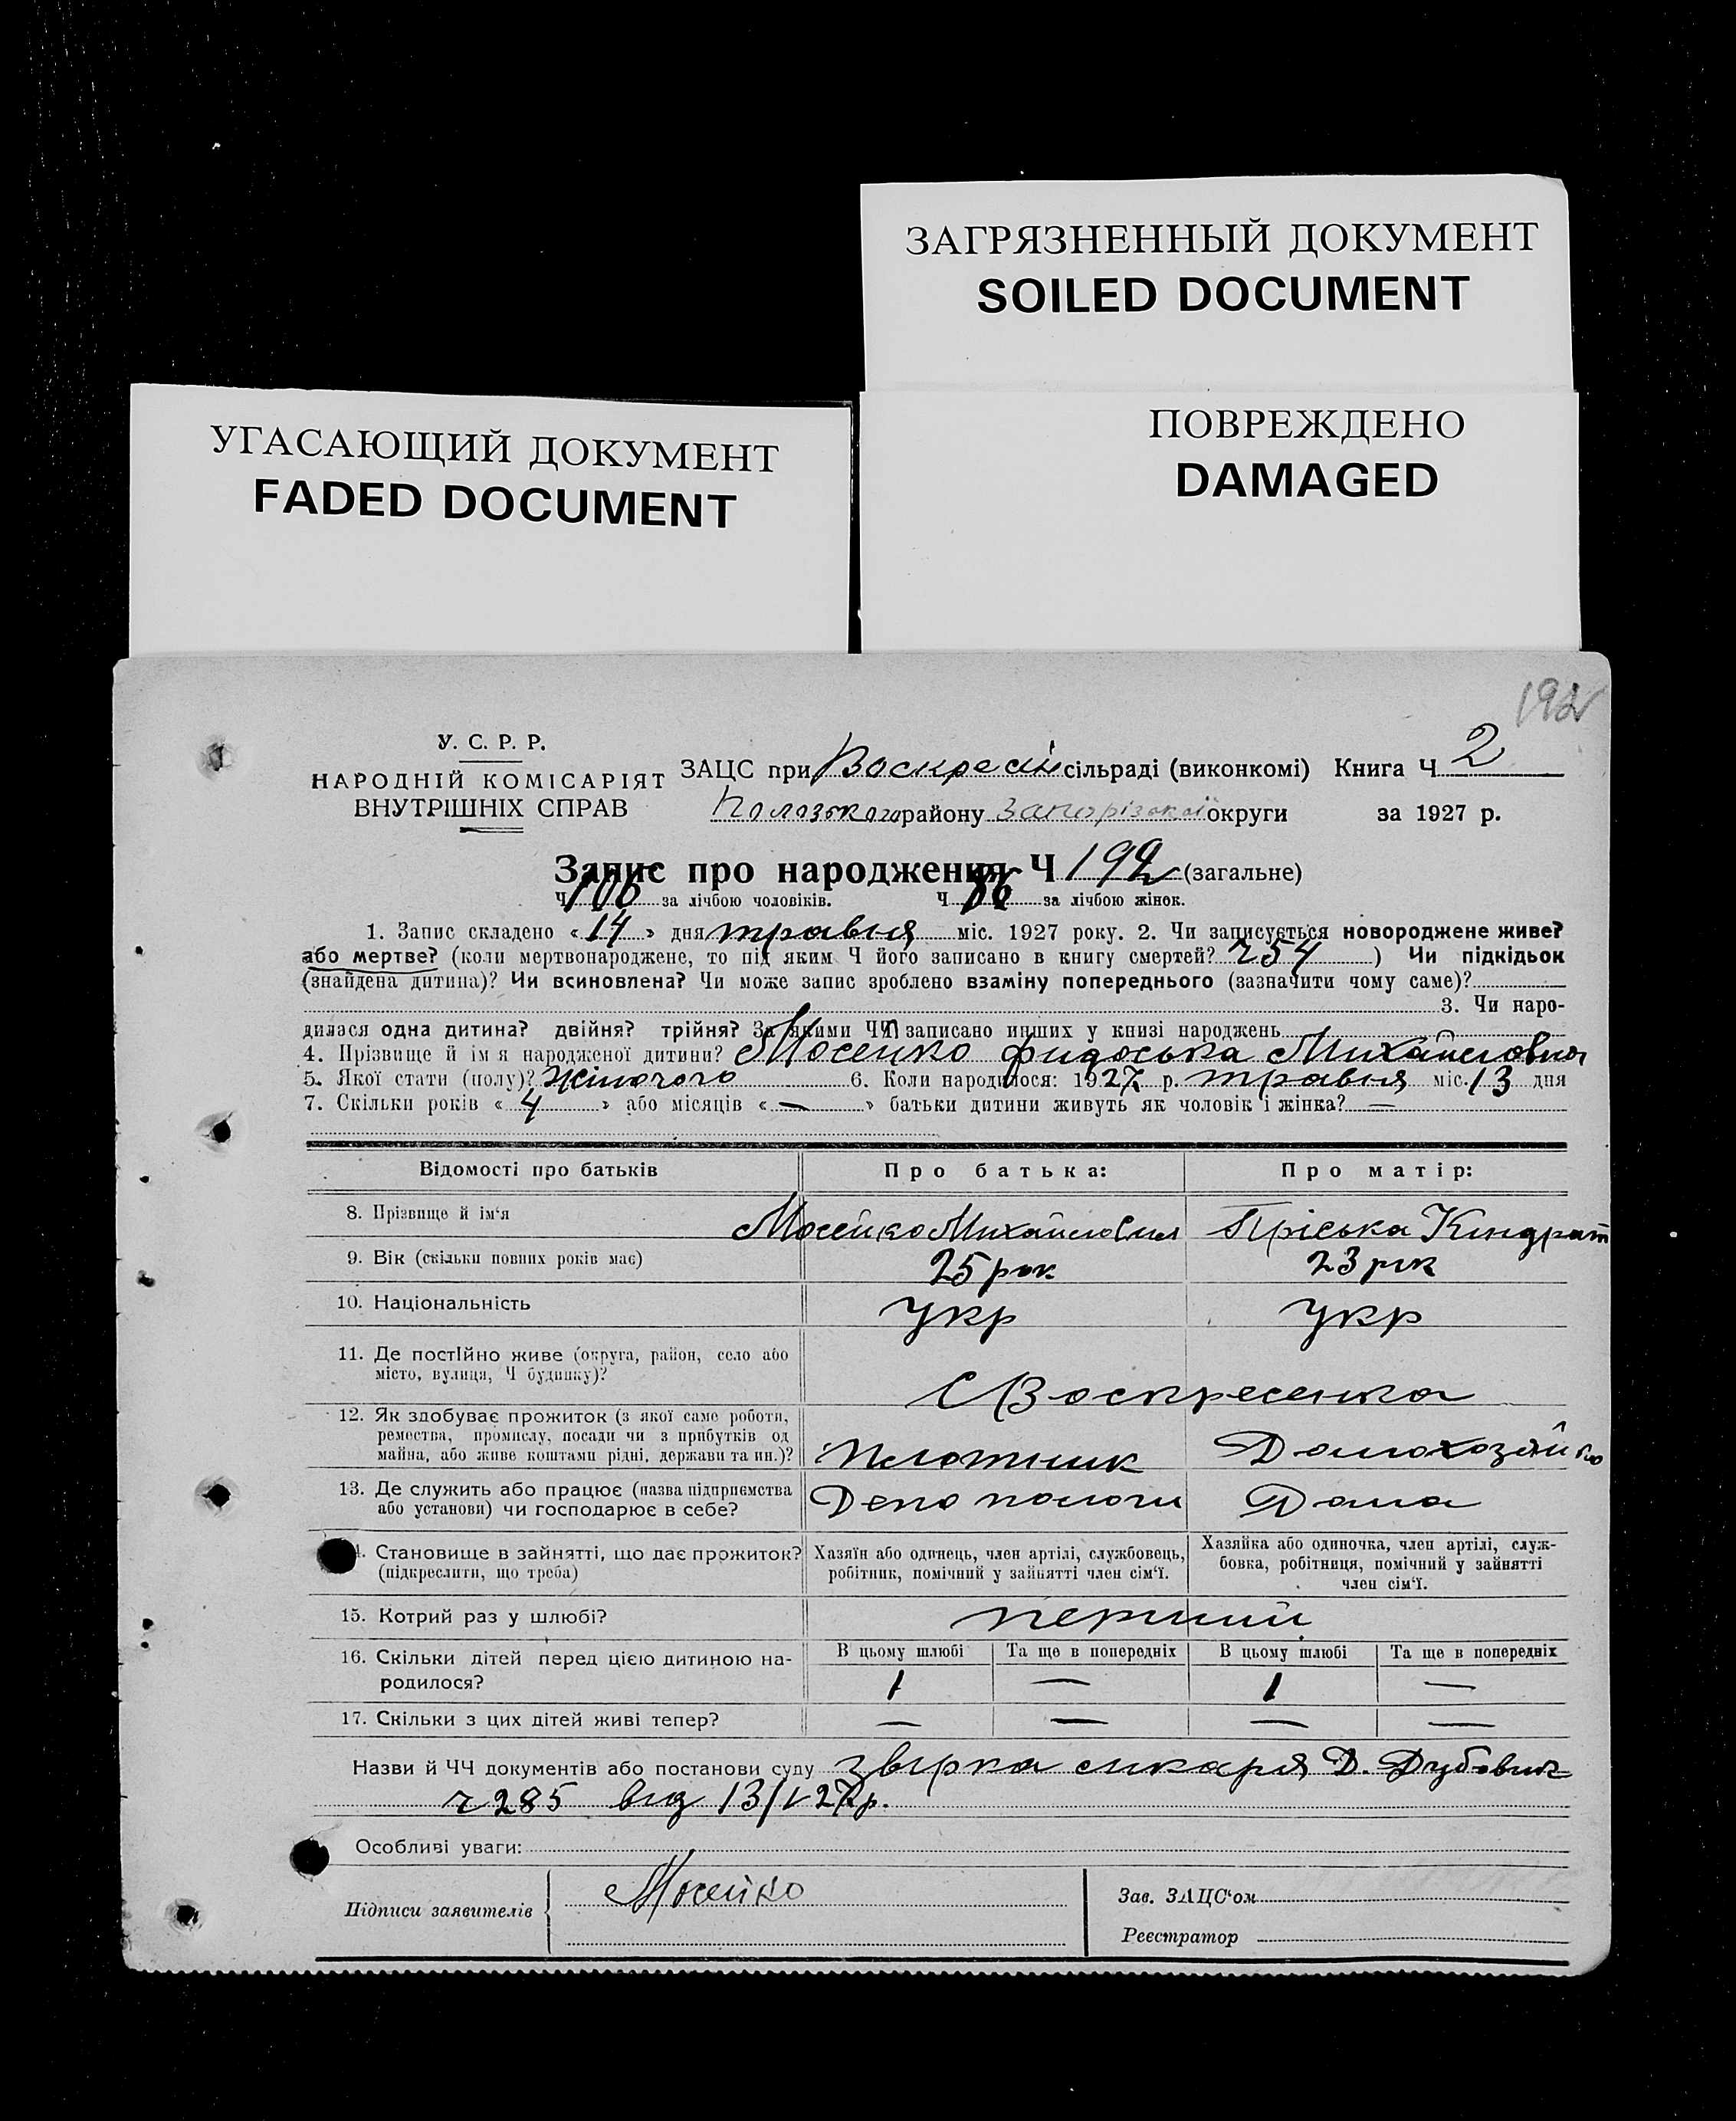 ЗАГРЯЗНЕННЫЙ ДОКУМЕНТ
SOILED DOCUMENT
ПОВРЕЖДЕНО
DAMAGED
УГАСАЮЩИЙ ДОКУМЕНТ
FADED DOCUMENT
192
У. С. Р. Р.
НАРОДНІЙ КОМІСАРІЯТ
ВНУТРІШНІХ СПРАВ
ЗАЦС при Воскресін сільраді (виконкомі) Книга Ч 2
Пологзького району Запорізької округи за 1927 р.
Запис про народження Ч 192 (загальне)
Ч 106 за лічбою чоловіків. Ч 86 за лічбою жінок.
1. Запис складено « 14 » дня травня міс. 1927 року. 2. Чи записується новороджене живе?
або мертве? (коли мертвонароджене, то під яким Ч його записано в книгу смертей? г 54 ) Чи підкідьок
(знайдена дитина)? Чи всиновлена? Чи може запис зроблено взаміну попереднього (зазначити чому саме)?
3. Чи наро-
дилася одна дитина? двійня? трійня? За якими ЧЧ записано инших у книзі народжень
4. Прізвище й ім'я народженої дитини? Мосейко Фидоська Михайловна
5. Якої стати (полу)? Жіночого 6. Коли народилося: 1927 р. травня міс. 13 дня
7. Скільки років « 4 » або місяців « — » батьки дитини живуть як чоловік і жінка? —
Відомості про батьків Про батька: Про матір:
8. Прізвище й ім'я Мосейко Михайло Пріська Киндрат
9. Вік (скільки повних років має) 25 рок 23 рок
10. Національність Укр Укр
11. Де постійно живе (округа, район, село або
місто, вулиця, Ч будинку)? С Воскресенка
12. Як здобуває прожиток (з якої саме роботи,
ремества, промислу, посади чи з прибутків од
майна, або живе коштами рідні, держави та ин.)? Плотник Домохозяйство
13. Де служить або працює (назва підприємства
або установи) чи господарює в себе? Депо пологи Дома
14. Становище в зайнятті, що дає прожиток?
(підкреслити, що треба)
Хазяїн або одинець, член артілі, службовець,
робітник, помічний у зайнятті член сім'ї.
Хазяйка або одиночка, член артілі, служ-
бовка, робітниця, помічний у зайнятті
член сім'ї.
15. Котрий раз у шлюбі? перший
16. Скільки дітей перед цією дитиною на-
родилося?
В цьому шлюбі Та ще в попередніх В цьому шлюбі Та ще в попередніх
1 — 1 —
17. Скільки з цих дітей живі тепер? — — — —
Назви й ЧЧ документів або постанови суду Д. Дубович
г 285 від 13/V 27р.
Особливі уваги:
Підписи заявителів Мосейко
Зав. ЗАЦС'ом
Реєстратор